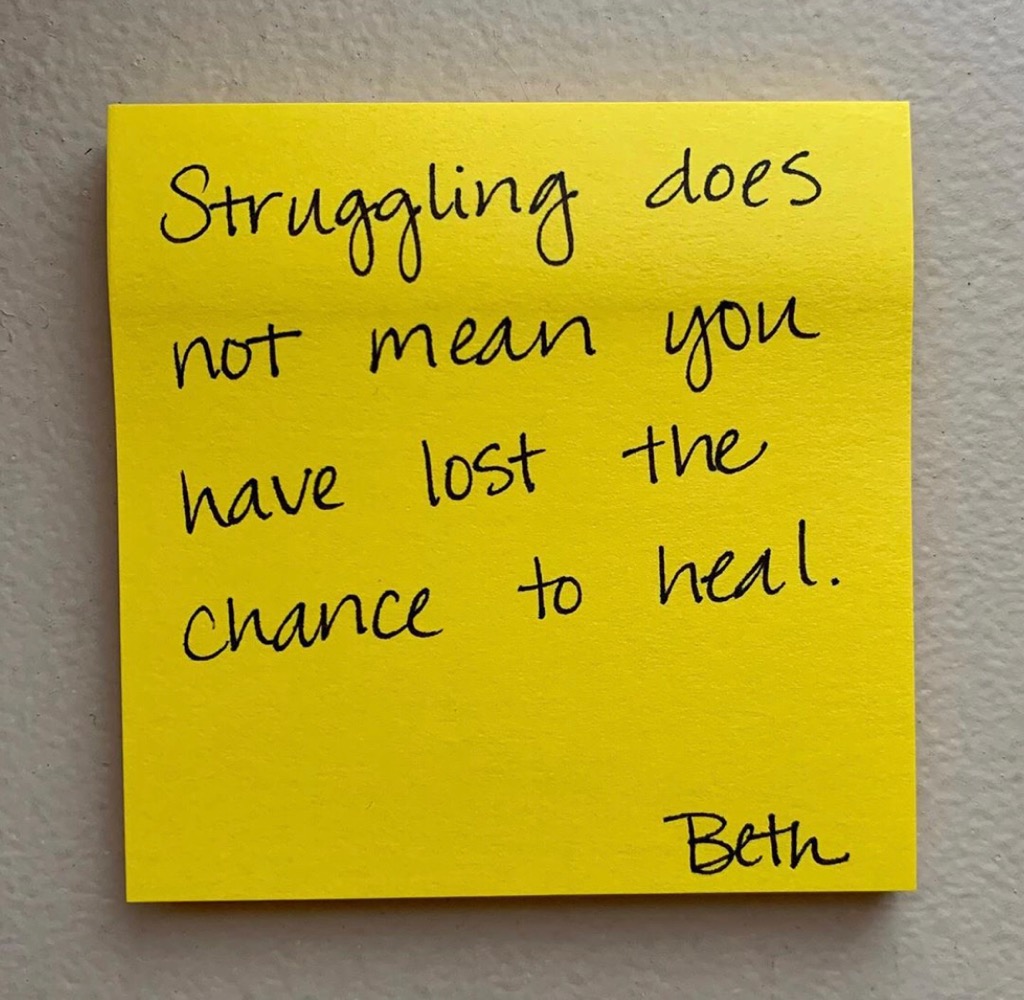 Struggling does
not mean you
have lost the
chance to heal.
Beth